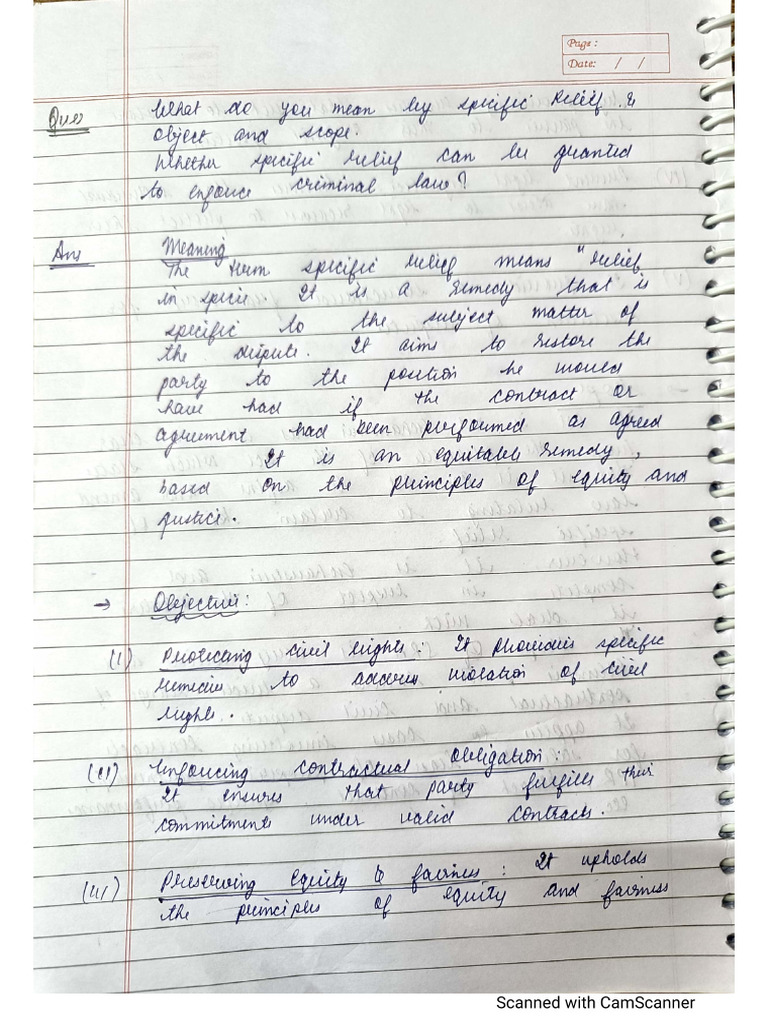 Page :
Date: / /
Ques What do you mean by specific Relief &
object and scope.
Whether specific relief can be granted
to enforce criminal law?
Ans Meaning
The term specific relief means "relief
in specie It is a remedy that is
specific to the subject matter of
the dispute. It aims to restore the
party to the position he would
have had if the contract or
agreement had been performed as agreed
It is an equitable remedy,
based on the principles of equity and
justice.
→ Objective:
(i) Protecting civil rights : It provides specific
remedies to address violation of civil
rights.
(ii) Enforcing contractual obligation :
It ensures that party fulfills their
commitments under valid contracts.
(iii) Preserving equity & fairness : It upholds
the principles of equity and fairness
Scanned with CamScanner